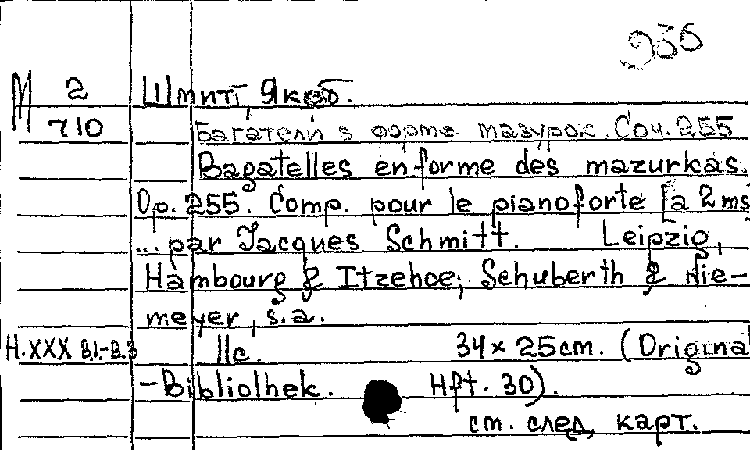 936
M 2 Шмитт, Якоб.
710 Багатели в форме мазурок. Соч. 255
Bagatelles en forme des mazurkas.
Op. 255. Comp. pour le pianoforte [à 2 ms
... par Jacques Schmitt. Leipzig,
Hambourg & Itzehoe, Schuberth & Nie-
meyer, s.a.
H.XXX 81.-В.3 11c. 34 x 25cm. (Original
-Bibliolhek. Hft. 30).
см. след. карт.